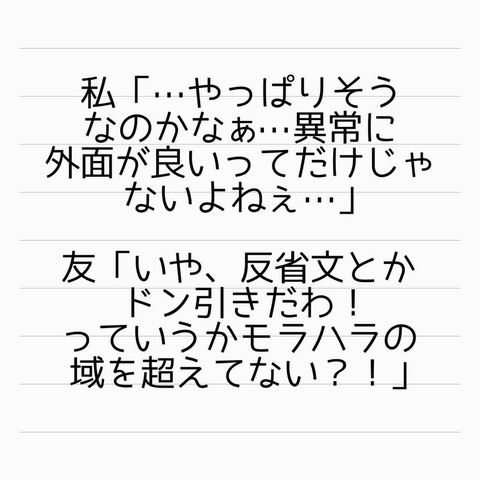 私「…やっぱりそう
なのかなぁ…異常に
外面が良いってだけじゃ
ないよねぇ…」
友「いや、反省文とか
ドン引きだわ！
っていうかモラハラの
域を超えてない？！」